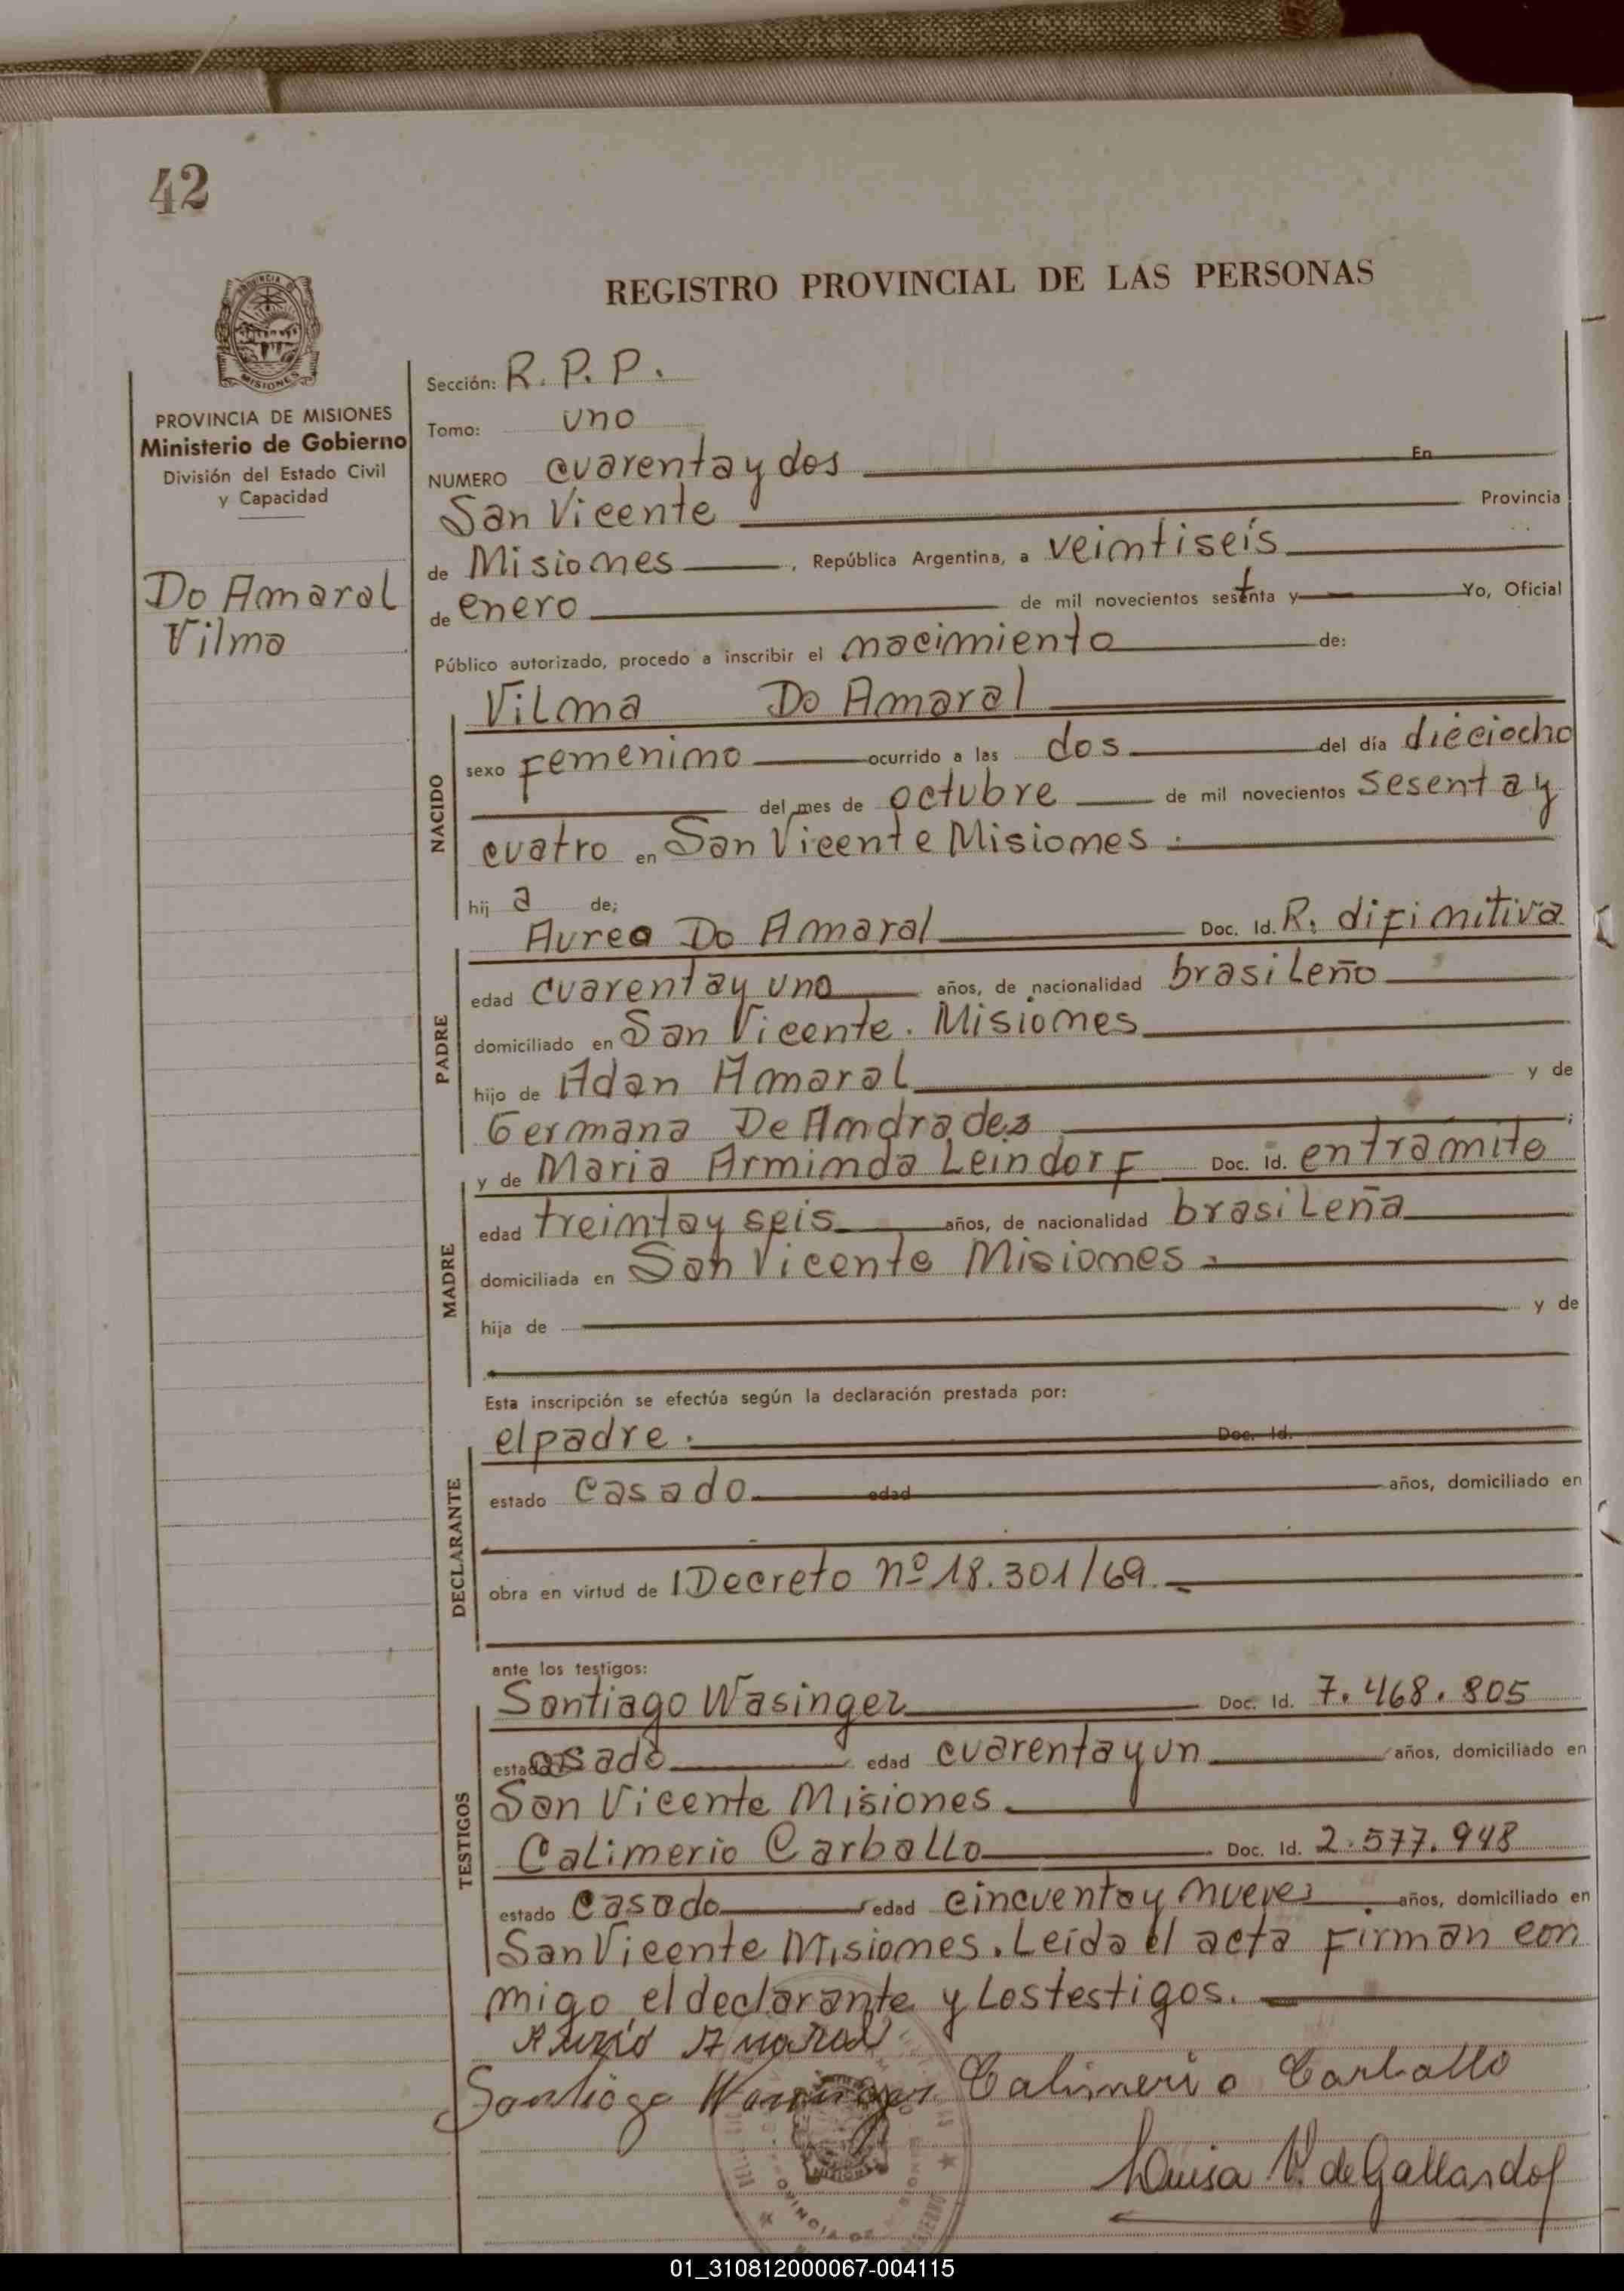 42
REGISTRO PROVINCIAL DE LAS PERSONAS
PROVINCIA DE MISIONES
Ministerio de Gobierno
División del Estado Civil
y Capacidad
Do Amaral
Vilma
Sección: R. P. P.
Tomo: uno
NUMERO cuarenta y dos En
San Vicente Provincia
de Misiones, República Argentina, a veintiseís
de enero de mil novecientos sesenta y Yo, Oficial
Público autorizado, procedo a inscribir el nacimiento de:
NACIDO
Vilma Do Amaral
sexo Femenino ocurrido a las dos del día dieciocho
del mes de octubre de mil novecientos sesenta y
cuatro en San Vicente Misiones.
hij a de;
PADRE
Aureo Do Amaral Doc. Id. R. difinitiva
edad cuarenta y uno años, de nacionalidad brasileño
domiciliado en San Vicente. Misiones
hijo de Adan Amaral y de
Germana De Andrades ;
MADRE
y de Maria Arminda Leindorf Doc. Id. en tramite
edad treinta y seis años, de nacionalidad brasileña
domiciliada en San Vicente Misiones.
hija de y de
Esta inscripción se efectúa según la declaración prestada por:
DECLARANTE
el padre. Doc. Id.
estado casado edad años, domiciliado en
obra en virtud de Decreto nº 18.301/69.
ante los testigos:
TESTIGOS
Santiago Wasinger Doc. Id. 7.468.805
estado casado edad cuarenta y un años, domiciliado en
San Vicente Misiones.
Calimerio Carballo Doc. Id. 2.577.948
estado casado edad cincuenta y nueve años, domiciliado en
San Vicente Misiones. Leída el acta Firman con
migo, el declarante y los testigos.
Amaral
Santiago Wasinger Calimerio Carballo
Luisa V. de Gallardo
01_310812000067-004115